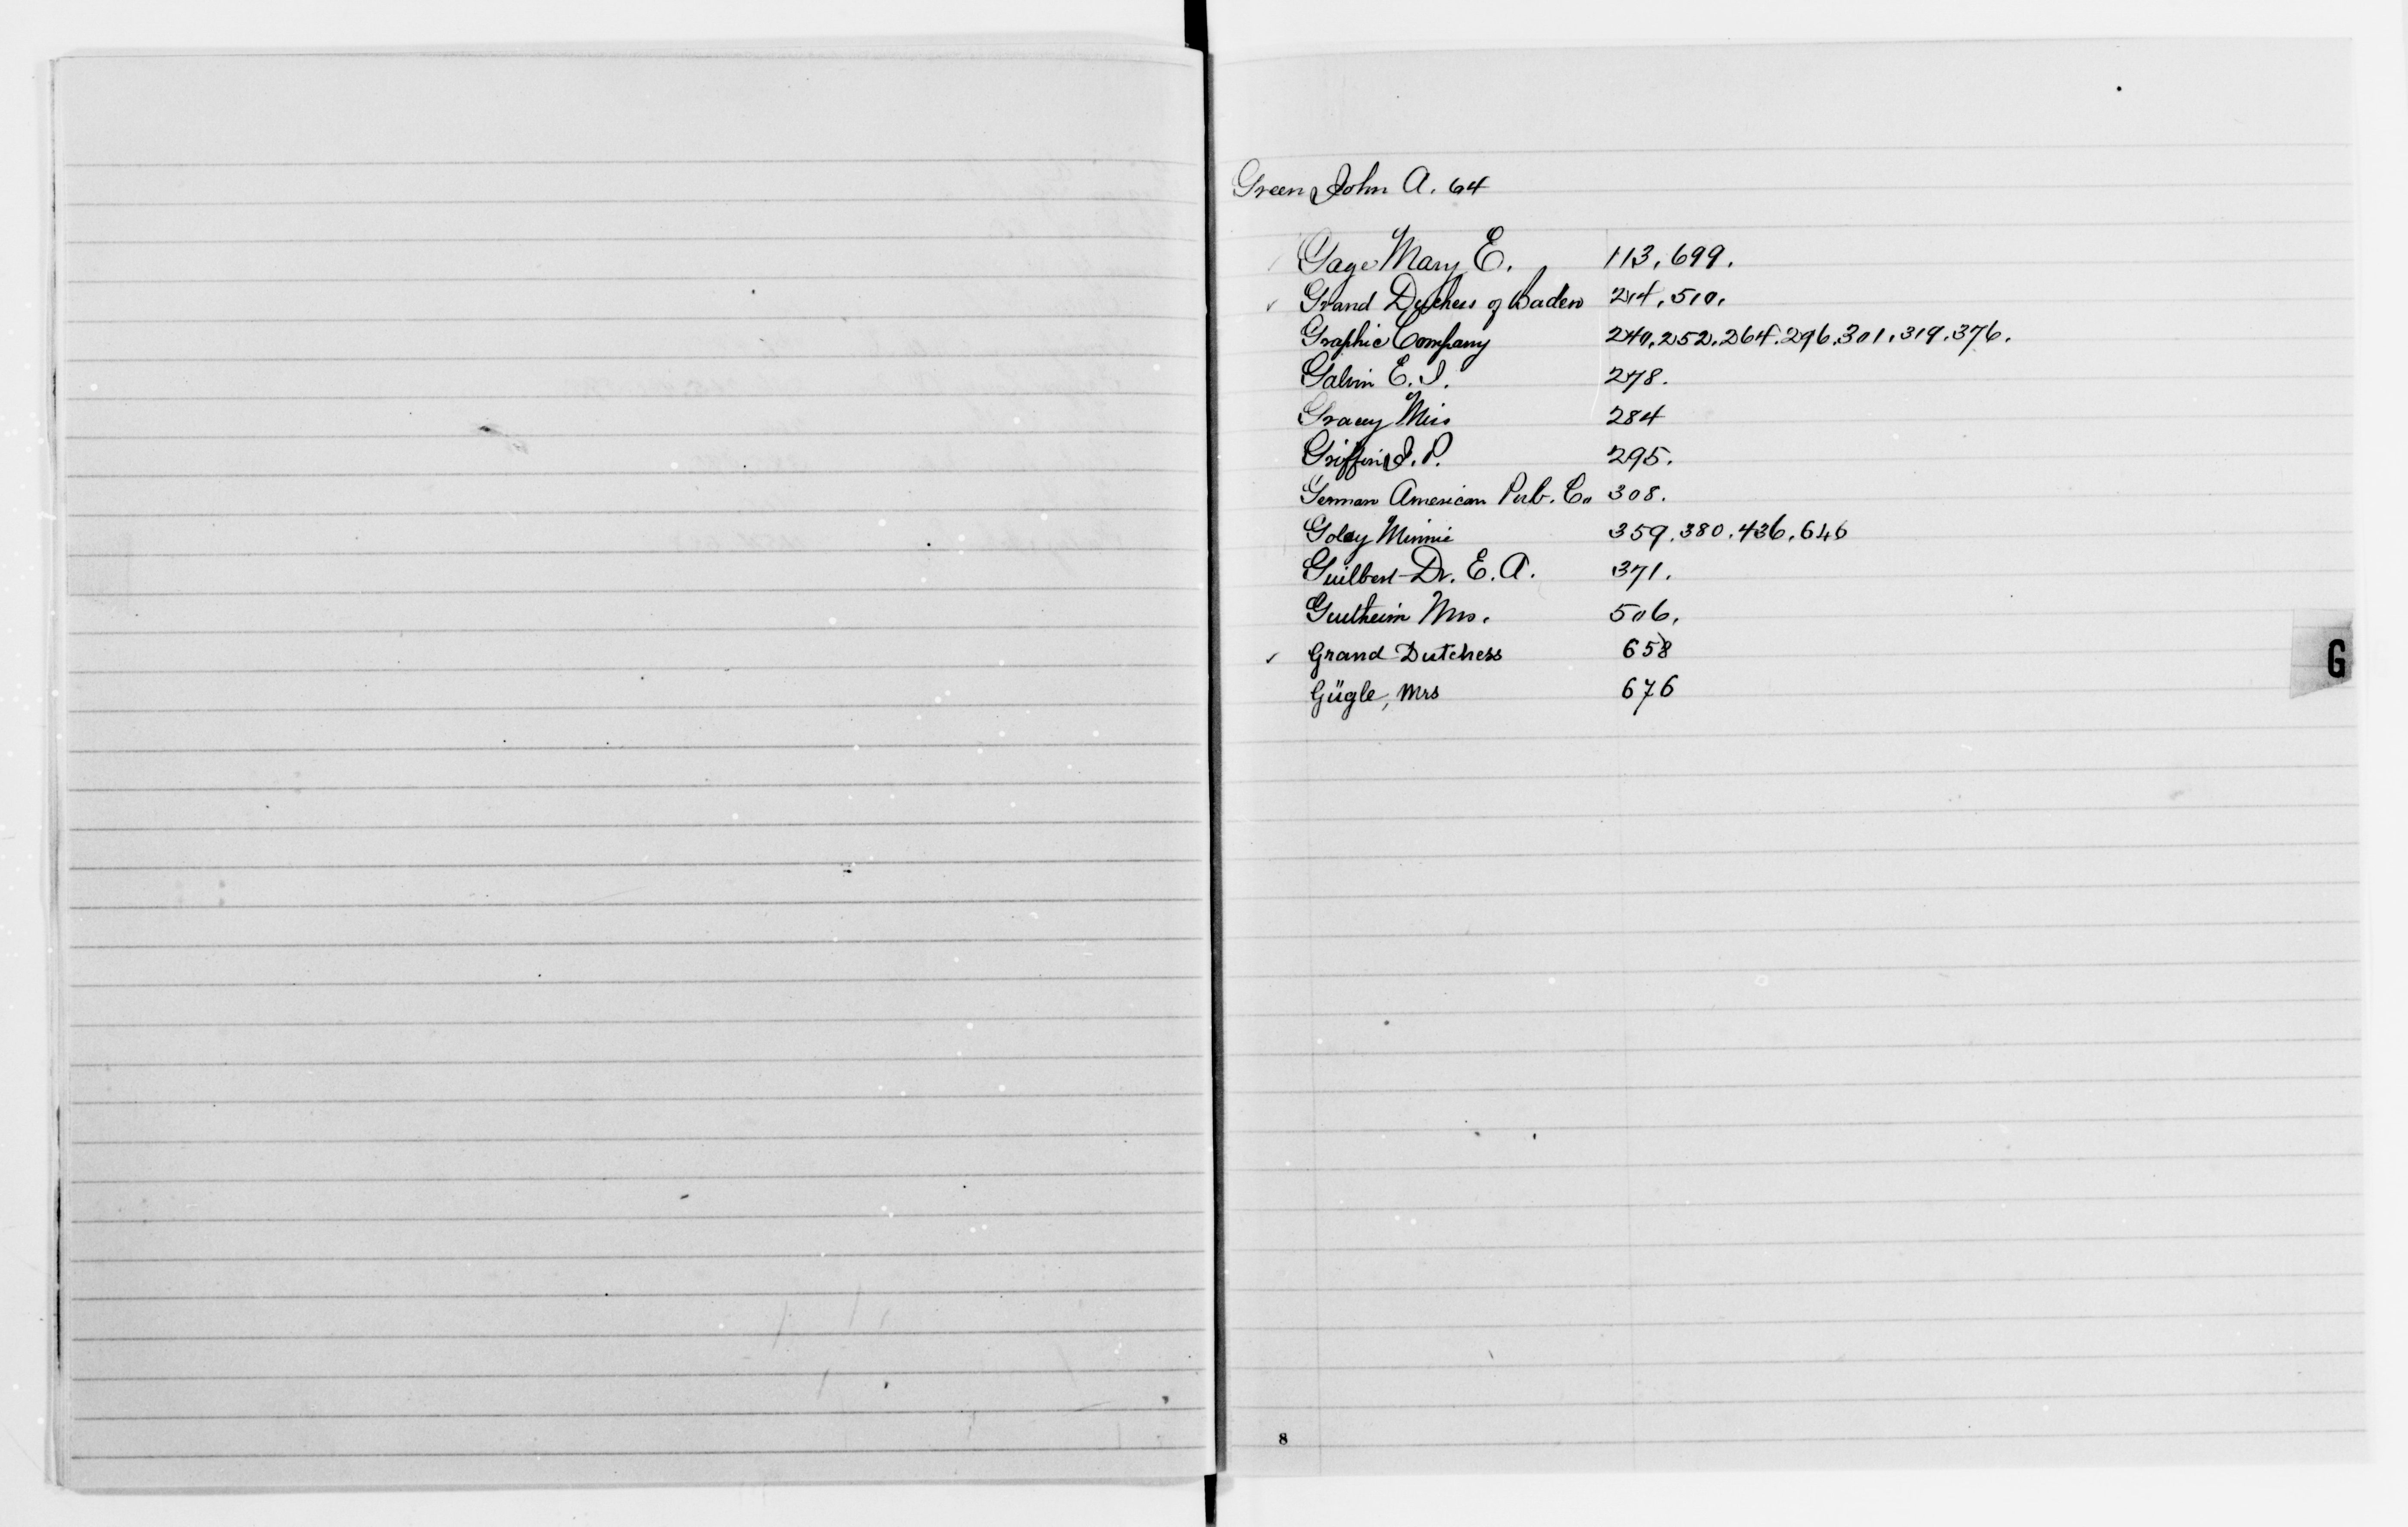 Green John A. 64
Gage Mary E. 113, 699.
✓ Grand Duchess of Baden 214, 510,
Graphic Company 240, 252, 264. 296. 301, 319. 376.
Galvin E. I. 278.
Gracey Miss 284
Griffin I. P. 295.
German American Pub. Co. 308.
Golay Minnie 359. 380. 436. 646
Guilbert Dr. E. A. 371.
Gutheim Mrs. 506,
✓ Grand Dutchess 658
Gügle, Mrs 676
G
8